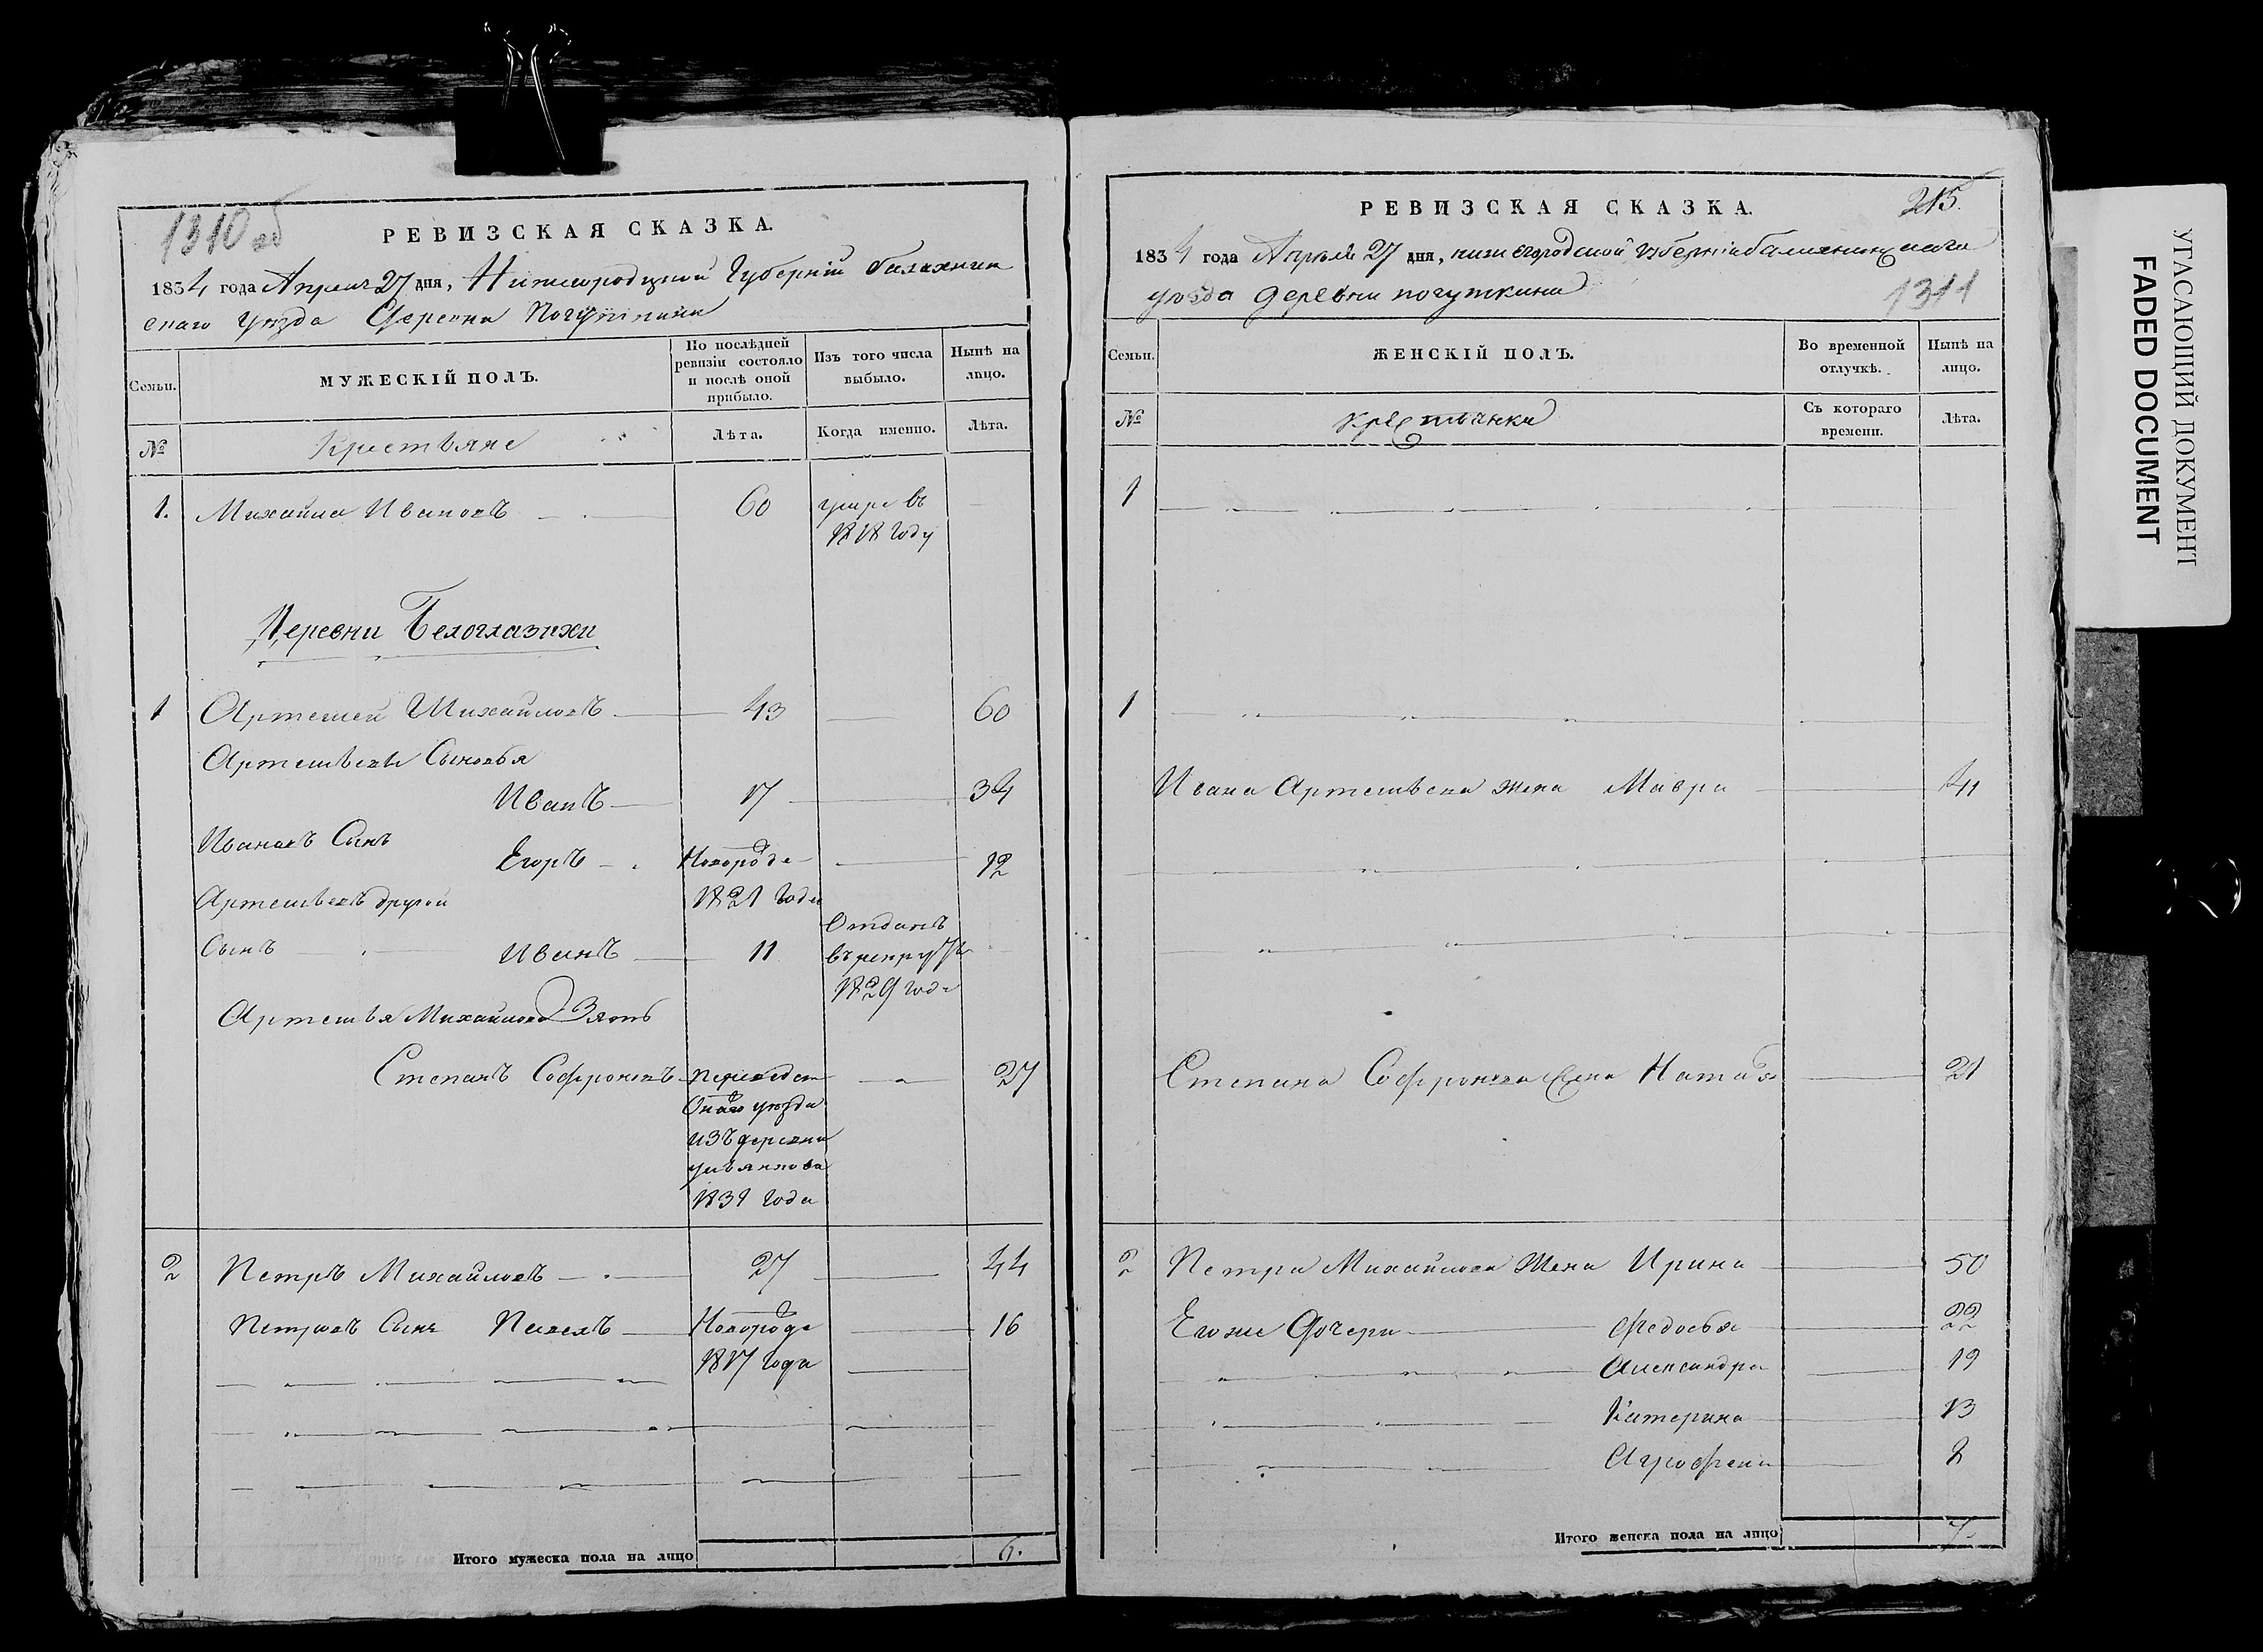 1310 об
РЕВИЗСКАЯ СКАЗКА.
1834 года Апреля 27 дня, Нижегородской Губерніи балахнин
скаго уѣзда Деревни Погуткина
Семьи.
МУЖЕСКІЙ ПОЛЪ.
По послѣдней ревизіи состояло и послѣ оной прибыло.
Изъ того числа выбыло.
Нынѣ на лицо.
№
Крестьяне
Лѣта.
Когда именно.
Лѣта.
1. Михайла Ивановъ 60 умре въ
1818 году
Деревни Белоглазихи
1 Артемей Михайловъ 43 60
Артемьевы Сыновья
Иванъ 17 34
Ивановъ Сынъ
Егоръ Новорожде 12
Артемьевъ другой 1821 года
Отданъ
Сынъ Иванъ 11 въ рекруты
1829 года
Артемья Михайлова Зять
Степанъ Софроновъ переведен 27
Онаго уѣзда
изъ деревни
1831 года
2 Петръ Михайловъ 27 44
Петровъ Сынъ Павелъ Новорожде 16
1817 года
Итого мужеска пола на лицо 6.
РЕВИЗСКАЯ СКАЗКА.
215.
1834 года Апреля 27 дня, нижегородской губерніи балахнинскаго
уѣзда деревни погуткина
1311
Семьи.
ЖЕНСКІЙ ПОЛЪ.
Во временной отлучкѣ.
Нынѣ на лицо.
№
крестьянки
Съ котораго времени.
Лѣта.
1
1
Ивана Артемьева жена Мавра 41
Степана Софронова жена Наталья 21
2 Петра Михайлова Жена Ирина 50
Егоже Дочери Федосья 22
Александра 19
Катерина 13
Аграфена 8
Итого женска пола на лицо 7.
УГАСАЮЩИЙ ДОКУМЕНТ
FADED DOCUMENT